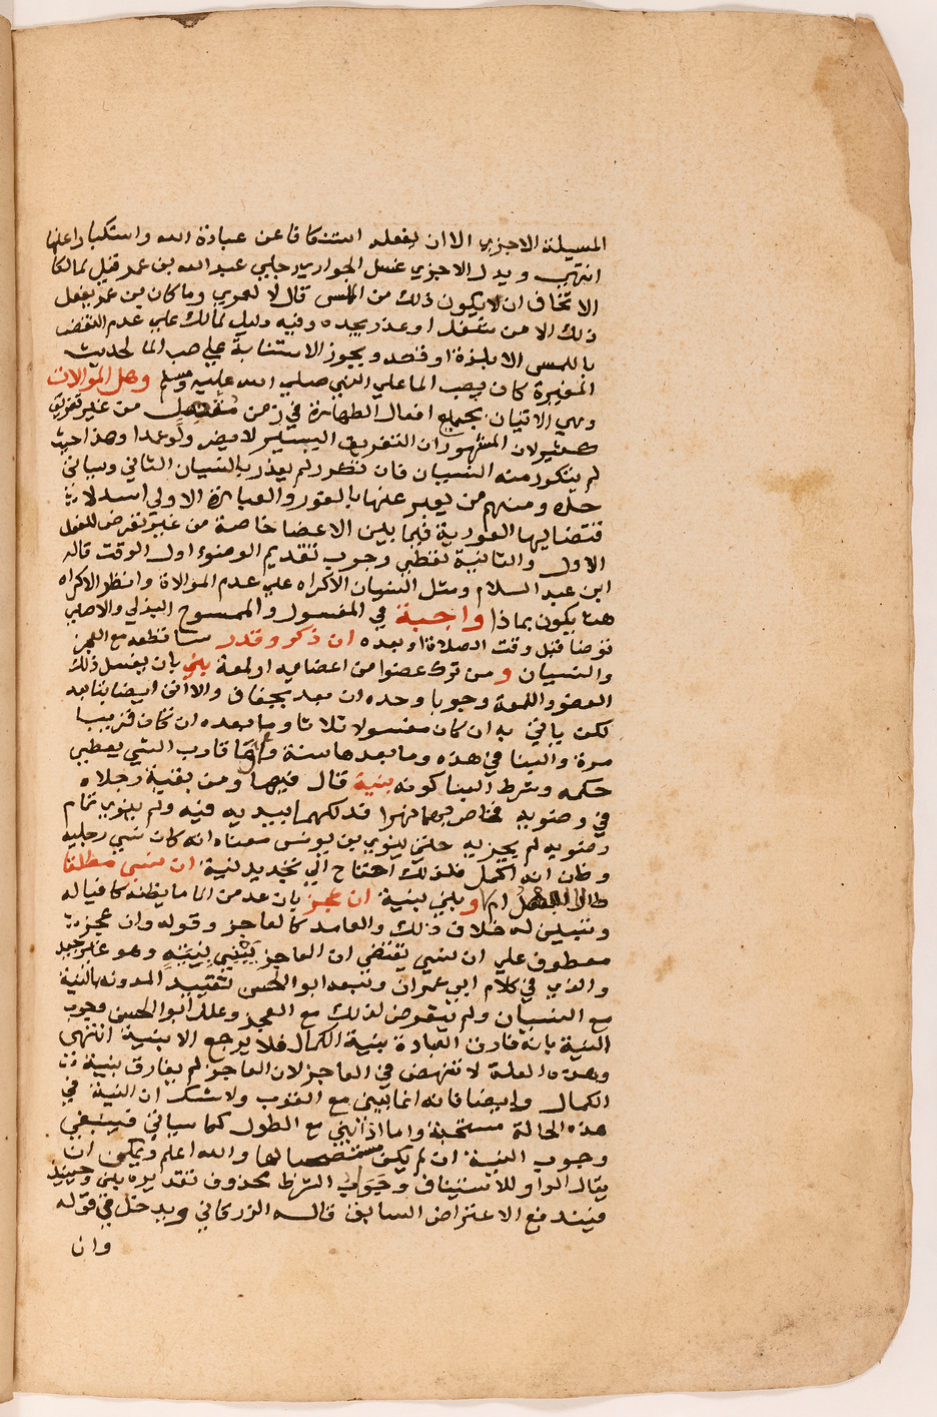 المسيلة الاجزي الا ان يفعله استنكافا عن عبادة الله واستكبارا عنها
انتهى ويدل الاجزي غسل الجواري رجلي عبد الله بن عمر قيل لمالك
الا تخاف ان لا يكون ذلك من اللمس قال لا لعمري وما كان بن عمر يفعل
ذلك الا من شغل او عذر يجده وفيه دليل لمالك علي عدم النقض
باللمس الا بلذة او قصد ويجوز الاستنابة علي صب الما لحديث
المغيرة كان يصب الما علي النبي صلي الله عليه وسلم وهل الموالات
وهي الاتيان بجميع افعال الطهارة في زمن متصل من غير تفريق
كثير لان المشهور ان التفريق اليسير لا يضر ولو عمدا وهذا حيث
لم يتكرر منه النسيان فان تكرر لم يعذر بالنسيان الثاني وسياتي
حله ومنهم من يعبر عنها بالفور والعبارة الاولي اسد لان
قتضايها الفورية فيما بين الاعضا خاصة من غير تعرض للفعل
الاول والثانية تقتضي وجوب تقديم الوضوء اول الوقت قاله
ابن عبد السلام ومثل النسيان الاكراه علي عدم الموالاة وانظر الاكراه
هنا يكون بماذا واجبة في المغسول والممسوح البدلي والاصلي
توضا قبل وقت الصلاة او بعده ان ذكر وقدر ساقطة مع العجز
والنسيان و من ترك عضوا من اعضايه او لمعة بني بان يغسل ذلك
العضو واللمعة وجوبا وحده ان بعد بجفاف والا اتي ايضا بما بعد
لكن ياتي به ان كان مغسولا ثلاثا وما بعده ان كان قريبا
مرة والبنا في هذه وما بعدها سنة وانما قارب الشي يعطي
حكمه وشرط البنا كونه بنية قال فيها ومن بقية رجلاه
في وضويه فخاض بهما نهرا فدلكهما بيديه فيه ولم ينو بهما تمام
وضويه لم يجزيه حتي ينوي بن يونس معناه انه كان نسي رجليه
وظن انه اكمل فلذلك احتاج الي تجديد لنية ان نسي مطلقا
طال الفصل ام لا و بني بنية ان عجز بان عد من الما ما يظنه كافيا له
وتبين له خلاف ذلك والعامد كالعاجز وقوله وان عجز
معطوف علي ان نسي يقتضي ان العاجز يبني بنية وهو غير جيد
والذي في كلام ابي عمران وتبعه ابو الحسن تقييد المدونه بالنية
مع النسيان ولم يتعرض لذلك مع العجز وعلل ابو الحسن وجوب
النية بانه فارق العبادة بنية الكمال فلا يرجع الا بنية انتهى
وهذه العلة لا تنهض في العاجز لان العاجز لم يفارق بنية
الكمال وايضا فانه انما يبني مع القرب ولا شك ان النية في
هذه الحالة مستحبة واما اذا بني مع الطول كما سياتي فينبغي
وجوب النية ان لم يكن مستصحبا لها والله اعلم ويمكن ان
يقال الواو للاستيناف وجواب الشرط محذوف تقديره بني وحينيذ
فيندفع الاعتراض السابق قاله الزرقاني ويدخل في قوله
وان